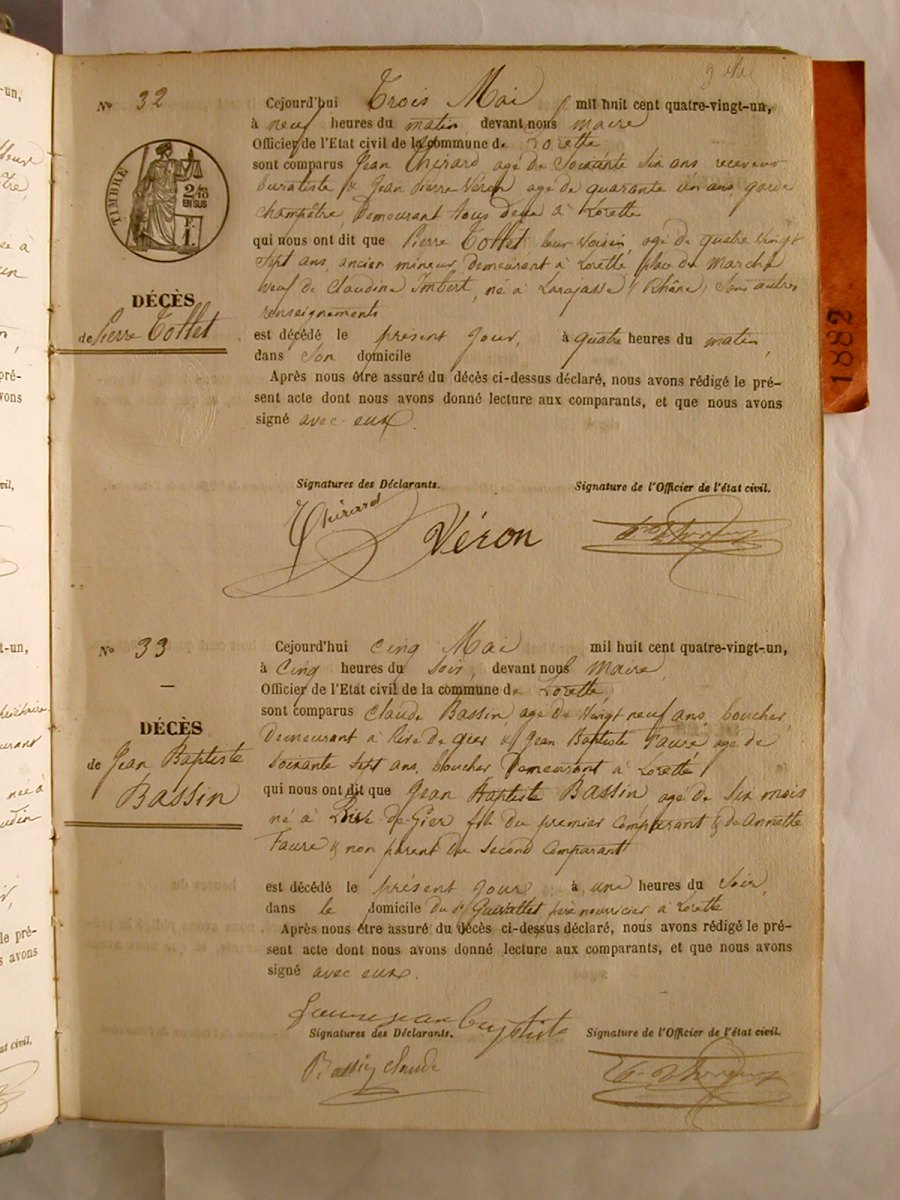 Nº 32
Cejourd'hui Trois Mai mil huit cent quatre-vingt-un,
à neuf heures du matin, devant nous maire
Officier de l'Etat civil de la commune de Lorette
sont comparus Jean Thérard agé de Soixante Six ans receveur
buraliste & Jean Pierre Véron agé de quarante un ans, garde
champêtre Demeurant tous deux à Lorette
qui nous ont dit que Pierre Tollet leur Voisin, agé de quatre Vingt
Sept ans, ancien mineur, demeurant à Lorette, place du Marché
Veuf de Claudine Imbert, né à Larajasse (Rhône) Sans autres
renseignements
est décédé le présent Jour, à quatre heures du matin,
dans Son domicile
Après nous être assuré du décès ci-dessus déclaré, nous avons rédigé le pré-
sent acte dont nous avons donné lecture aux comparants, et que nous avons
signé avec eux.
TIMBRE
2/10
EN SUS
F.
1.
DÉCÈS
de Pierre Tollet
1882
Signatures des Déclarants.
Signature de l'Officier de l'état civil.
Thérard
Véron
Nº 33
Cejourd'hui Cinq Mai mil huit cent quatre-vingt-un,
à Cinq heures du Soir, devant nous Maire
Officier de l'Etat civil de la commune de Lorette,
sont comparus Claude Bassin, agé de Vingt neuf ans, boucher,
Demeurant à Rive de Gier & Jean Baptiste Faure agé de
Soixante Sept ans, boucher Demeurant à Lorette
qui nous ont dit que Jean Baptiste Bassin agé de Six mois
né à Rive-de-Gier fils du premier Comparant & de Annette
Faure & non parent du Second Comparant
est décédé le présent Jour, à une heures du Soir,
dans le domicile du Sr père nourricier à Lorette
Après nous être assuré du décès ci-dessus déclaré, nous avons rédigé le pré-
sent acte dont nous avons donné lecture aux comparants, et que nous avons
signé avec eux.
DÉCÈS
de Jean Baptiste
Bassin
Faure Jean Baptiste
Signatures des Déclarants.
Signature de l'Officier de l'état civil.
Bassin Claude